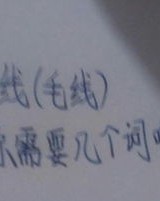 线(毛线)
需要几个词